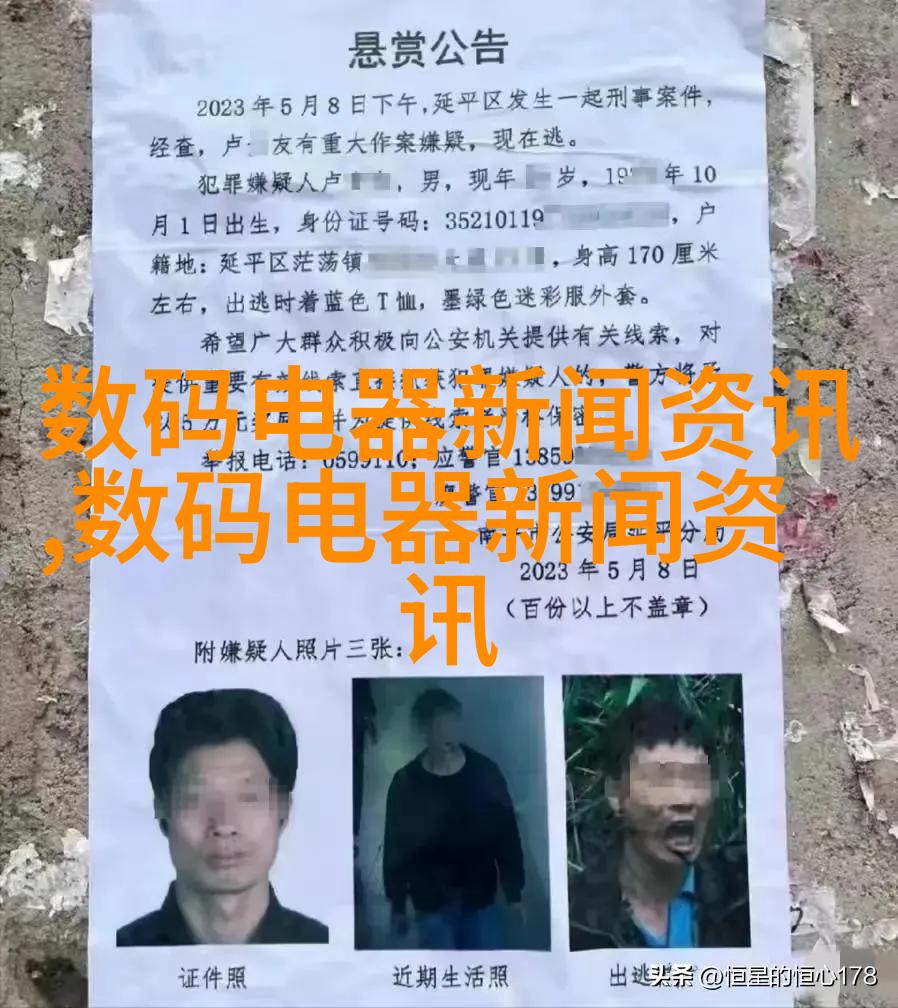 悬赏公告
2023年5月8日下午,延平区发生一起刑事案件,
经查,卢 友有重大作案嫌疑,现在逃。
犯罪嫌疑人卢 ,男,现年 岁,19 年10
月1日出生,身份证号码:35210119 ,户
籍地:延平区茫荡镇 ,身高170厘米
左右,出逃时着蓝色T恤,墨绿色迷彩服外套。
希望广大群众积极向公安机关提供有关线索,对
数码电器新闻资讯
,数码电器新闻资
讯
举报电话:0599110;应警官13859
警官 99
公安局延平分局
2023年5月8日
(百份以上不盖章)
附嫌疑人照片三张:
证件照
近期生活照
出逃
头条 @恒星的恒心178